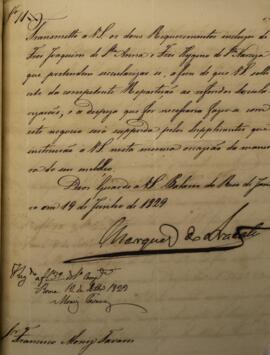 Transmetto a V.S. os dous Requerimentos inclusos de
Frei Joaquim de Sta. Anna, e Frei Hygino de Sta.
que pretendem secularizar-se, a fim de que V.S. solicite
da competente Repartição as referidas seculari-
zações, e a despeza que for necessaria fazer com
este negocio será supprida pelos Supplicantes que
nesta mesma occasião da manei-
ra do seu
Deos Guarde a V.S. Palacio do Rio de Janei-
ro em 19 de Junho de 1829
Marquez de Aracati
Roma 12 de 1829
Sr. Francisco Moniz Tavares